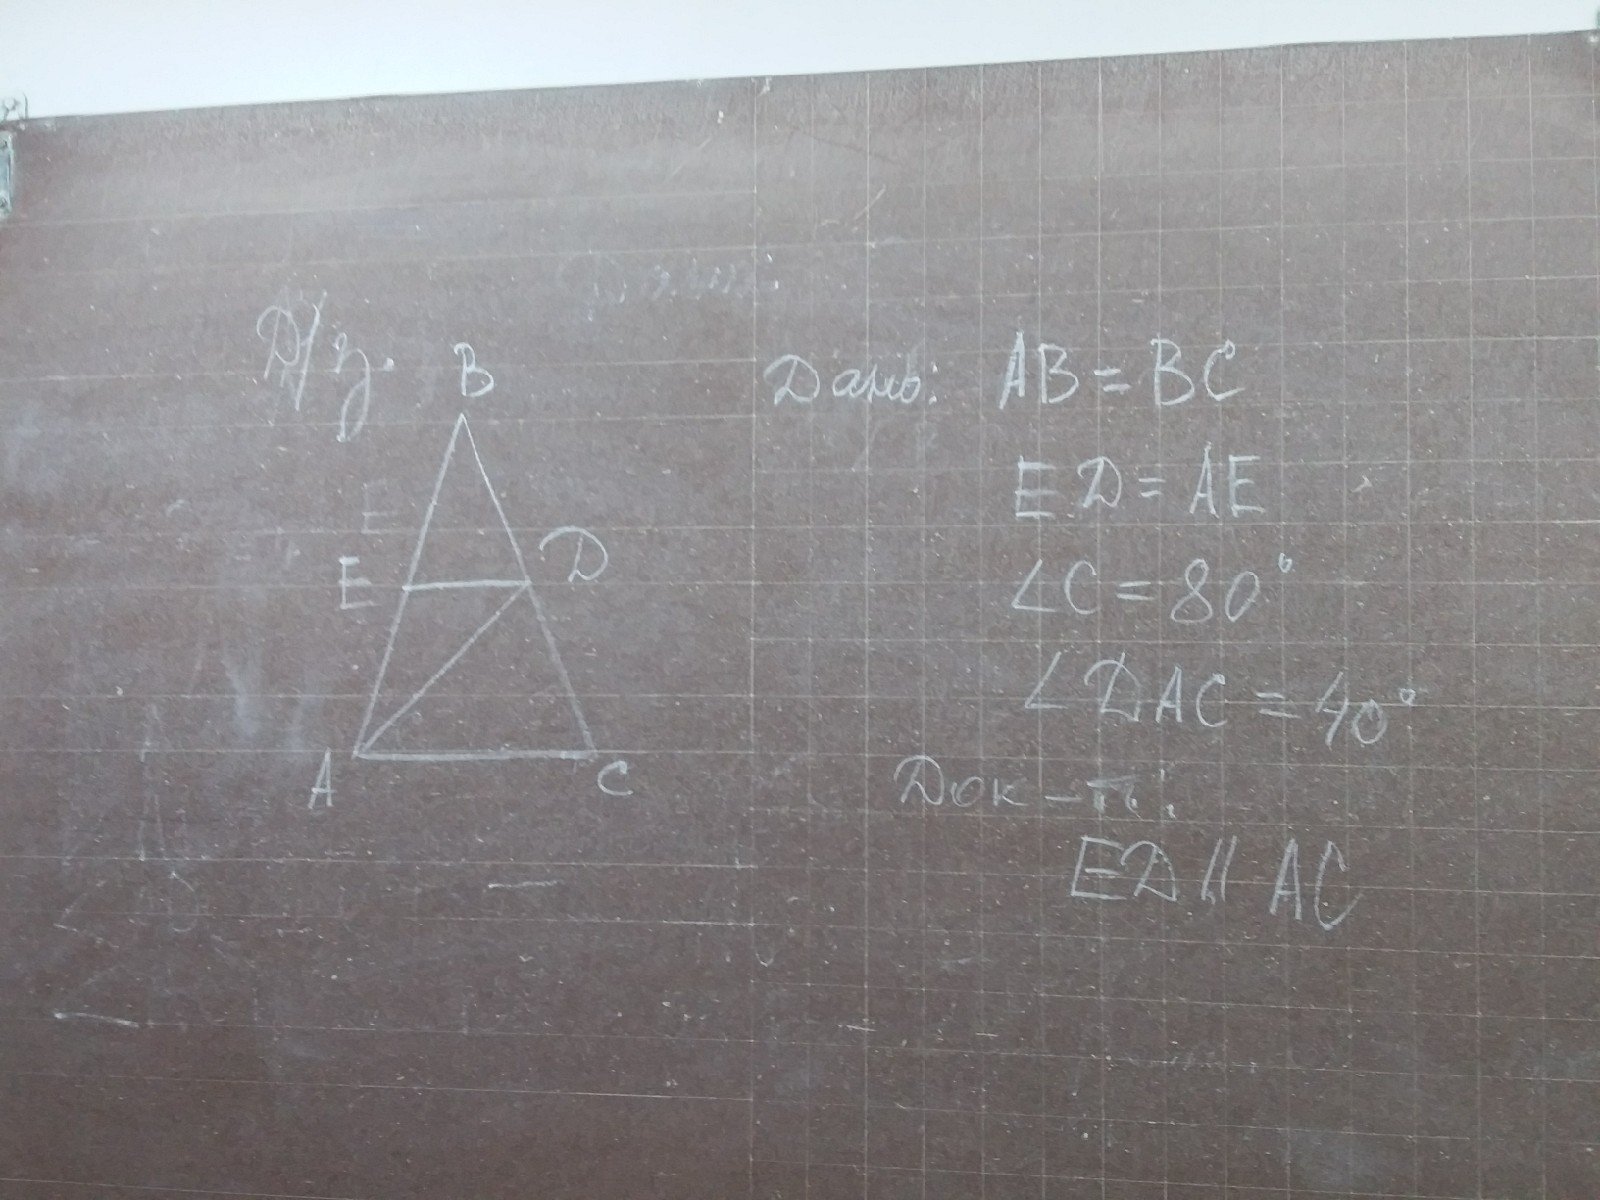 Д/з.
B
E
E
D
A
C
Дано: AB = BC
ED = AE
∠C = 80°
∠DAC = 40°
Док-ть:
ED || AC